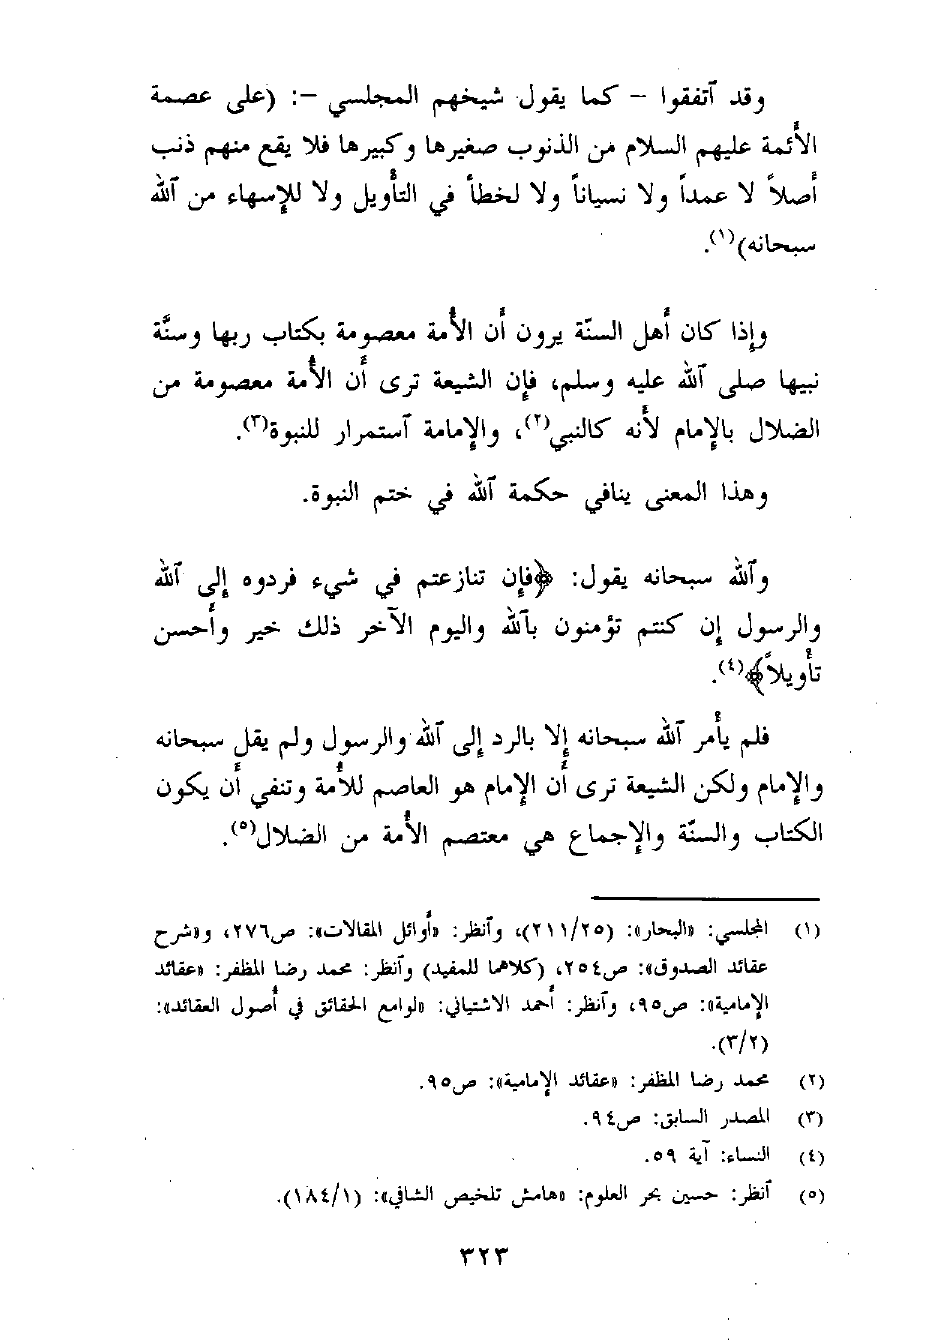 وقد آتفقوا – كما يقول شيخهم المجلسي –: (على عصمة
الأئمة عليهم السلام من الذنوب صغيرها وكبيرها فلا يقع منهم ذنب
أصلاً لا عمداً ولا نسياناً ولا لخطأ في التأويل ولا للإسهاء من آلله
سبحانه)(١).
وإذا كان أهل السنّة يرون أن الأمة معصومة بكتاب ربها وسنَّة
نبيها صلى آلله عليه وسلم، فإن الشيعة ترى أن الأمة معصومة من
الضلال بالإمام لأنه كالنبي(٢)، والإمامة آستمرار للنبوة(٣).
وهذا المعنى ينافي حكمة آلله في ختم النبوة.
وآلله سبحانه يقول: ﴿فإن تنازعتم في شيء فردوه إلى آلله
والرسول إن كنتم تؤمنون بآلله واليوم الآخر ذلك خير وأحسن
تأويلاً﴾(٤).
فلم يأمر آلله سبحانه إلا بالرد إلى آلله والرسول ولم يقل سبحانه
والإمام ولكن الشيعة ترى أن الإمام هو العاصم للأمة وتنفي أن يكون
الكتاب والسنّة والإجماع هي معتصم الأمة من الضلال(٥).
(١) المجلسي: «البحار»: (٢١١/٢٥)، وآنظر: «أوائل المقالات»: ص٢٧٦، و«شرح
عقائد الصدوق»: ص٢٥٤، (كلاهما للمفيد) وآنظر: محمد رضا المظفر: «عقائد
الإمامية»: ص٩٥، وآنظر: أحمد الاشتياني: «لوامع الحقائق في أصول العقائد»:
(٣/٢).
(٢) محمد رضا المظفر: «عقائد الإمامية»: ص٩٥.
(٣) المصدر السابق: ص٩٤.
(٤) النساء: آية ٥٩.
(٥) آنظر: حسين بحر العلوم: «هامش تلخيص الشافي»: (١٨٤/١).
٣٢٣